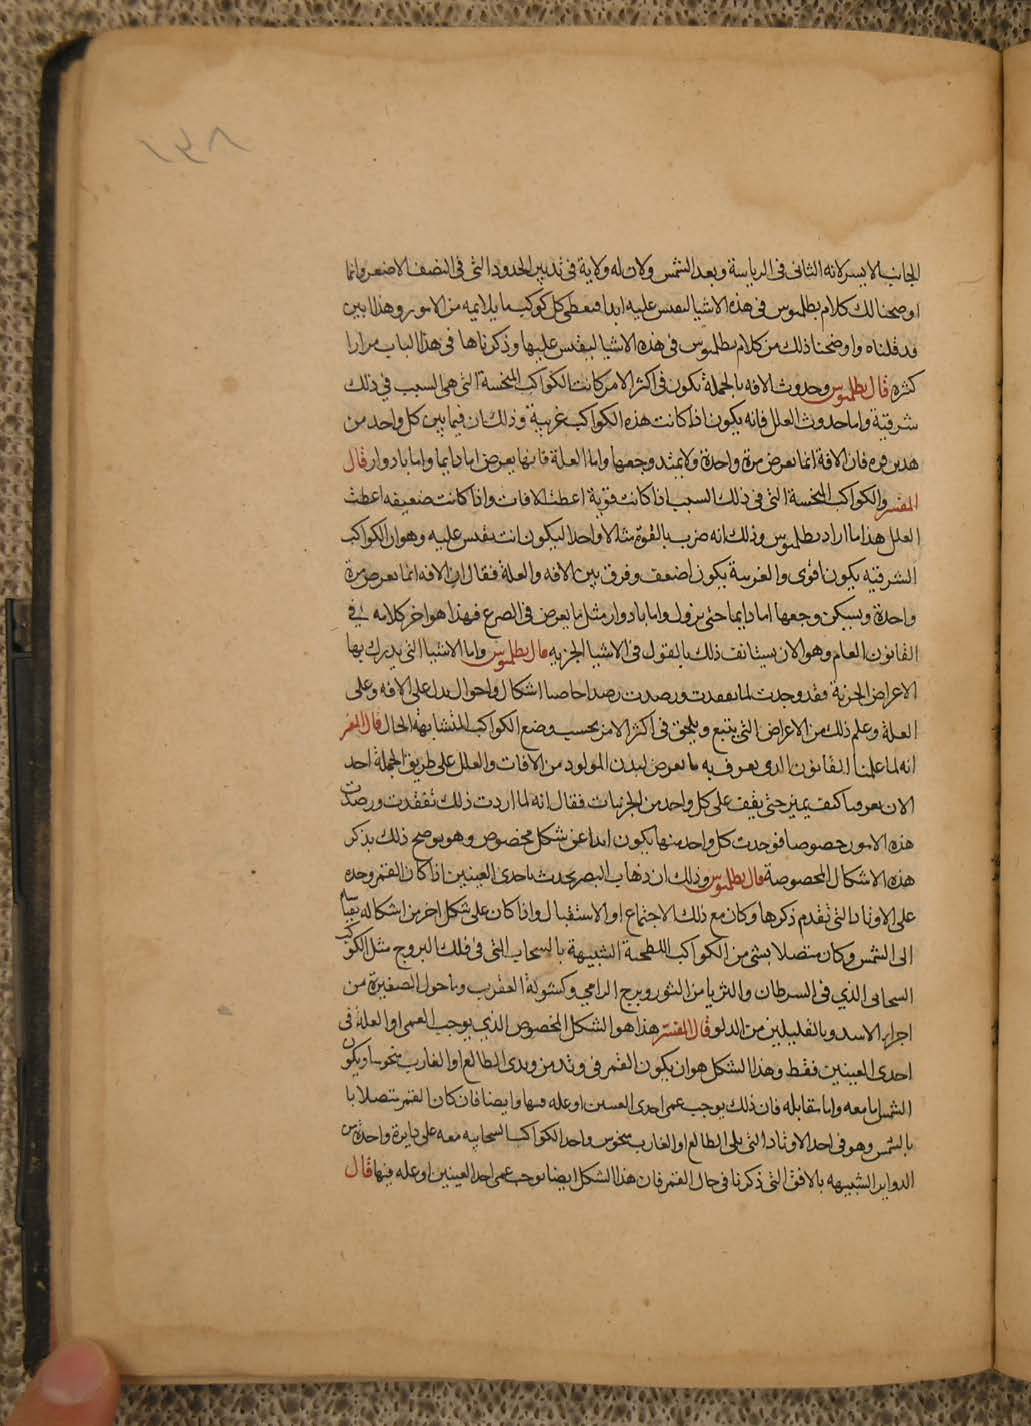 الجانب الايسر لانه الثانى فى الرياسة وبعد الشمس ولان له ولاية فى تدبير الحدود التى فى النصف الاضعف وانما
اوضحنا لك كلام بطلميوس فى هذه الاشيا لتقس عليه ابدا فتعطى كل كوكب ما يلايمه من الامور وهذا بين
قد قلناه واوضحنا ذلك من كلام بطلميوس فى هذه الاشيا ليقس عليها وذكرناها فى هذا الباب مرارا
كثره قال بطلميوس وحدوث الافه بالجملة تكون فى اكثر الامر كانت الكواكب المنحسة التى هى السبب فى ذلك
شرقية واما حدوث العلل فانه يكون اذا كانت هذه الكواكب غربية وذلك ان فيما بين كل واحد من
هذين فره فان الافة انما تعرض مرة واحدة ولا يمتد وجعها واما العلة فانها تعرض اما دايما واما بادوار قال
المفسر والكواكب المنحسة التى فى ذلك السبب اذا كانت قوية اعطت الافات واذا كانت ضعيفه اعطت
العلل هذا ما اراد بطلميوس وذلك انه ضرب بالقوة مثالا واحدا ليكون انت تقس عليه وهو ان الكواكب
الشرقيه يكون اقوى والغربية يكون اضعف وفرق بين الافه والعلة فقال ان الافه انما تعرض مرة
واحدة ويسكن وجعها اما دايما حتى يزول واما بادوار مثل ما يعرض فى الصرع فهذا هو اخر كلامه فى
القانون العام وهو الان يستانف ذلك بالقول فى الاشيا الجزيه قال بطلميوس واما الاشيا التى يدرك بها
الاعراض الجزية فقد وجدت لما تفقدت ورصدت رصدا خاصا اشكال واحوال يدل على الافه وعلى
العلة وعلم ذلك من الاعراض التى يتبع ويلحق فى اكثر الامر بحسب وضع الكواكب المتشابهة الحال قال المفسر
انه لما علمنا القانون الذى يعرف به ما يعرض لبدن المولود من الافات والعلل على طريق الجملة احد
الان يعرفنا كيف يميز حتى يقف على كل واحد من الجزئيات فقال انه لما اردت ذلك تفقدت ورصدت
هذه الامور خصوصا فوجدت كل واحد منها يكون ابدا عن شكل مخصوص وهو يوضح ذلك بذكر
هذه الاشكال المخصوصة قال بطلميوس وذلك ان ذهاب البصر يحدث باحدى العينين اذا كان القمر وحده
على الاوتاد التى تقدم ذكرها وكان مع ذلك الاجتماع او الاستقبال واذا كان على شكل اخر من اشكاله بقياسه
الى الشمس وكان متصلا بشى من الكواكب اللطخية الشبيهة بالسحاب التى فى فلك البروج مثل الكوكب
السحابى الذي فى السرطان والثريا من الثور وبرج الرامي وكشولة العقرب وما حول الصفيرة من
اجزاء الاسد وبالقليلين من الدلو قال المفسر هذا هو الشكل المخصوص الذي يوجب العمى او العلة فى
احدى العينين فقط وهذا الشكل هو ان يكون القمر فى وتد من وتدى الطالع او الغارب منحوسا ويكون
الشمس اما معه واما مقابله فان ذلك يوجب عمى احدى العينين او عله فيها وايضا فان كان القمر متصلا با
بالشمس وهو فى احد الاوتاد التى يلى الطالع او الغارب منحوس واحد الكواكب السحابيه معه على دايرة واحدة من
الدواير الشبيهه بالافق التى ذكرنا فى حال القمر فان هذا الشكل ايضا يوجب عمى احد العينين او عله فيها قال